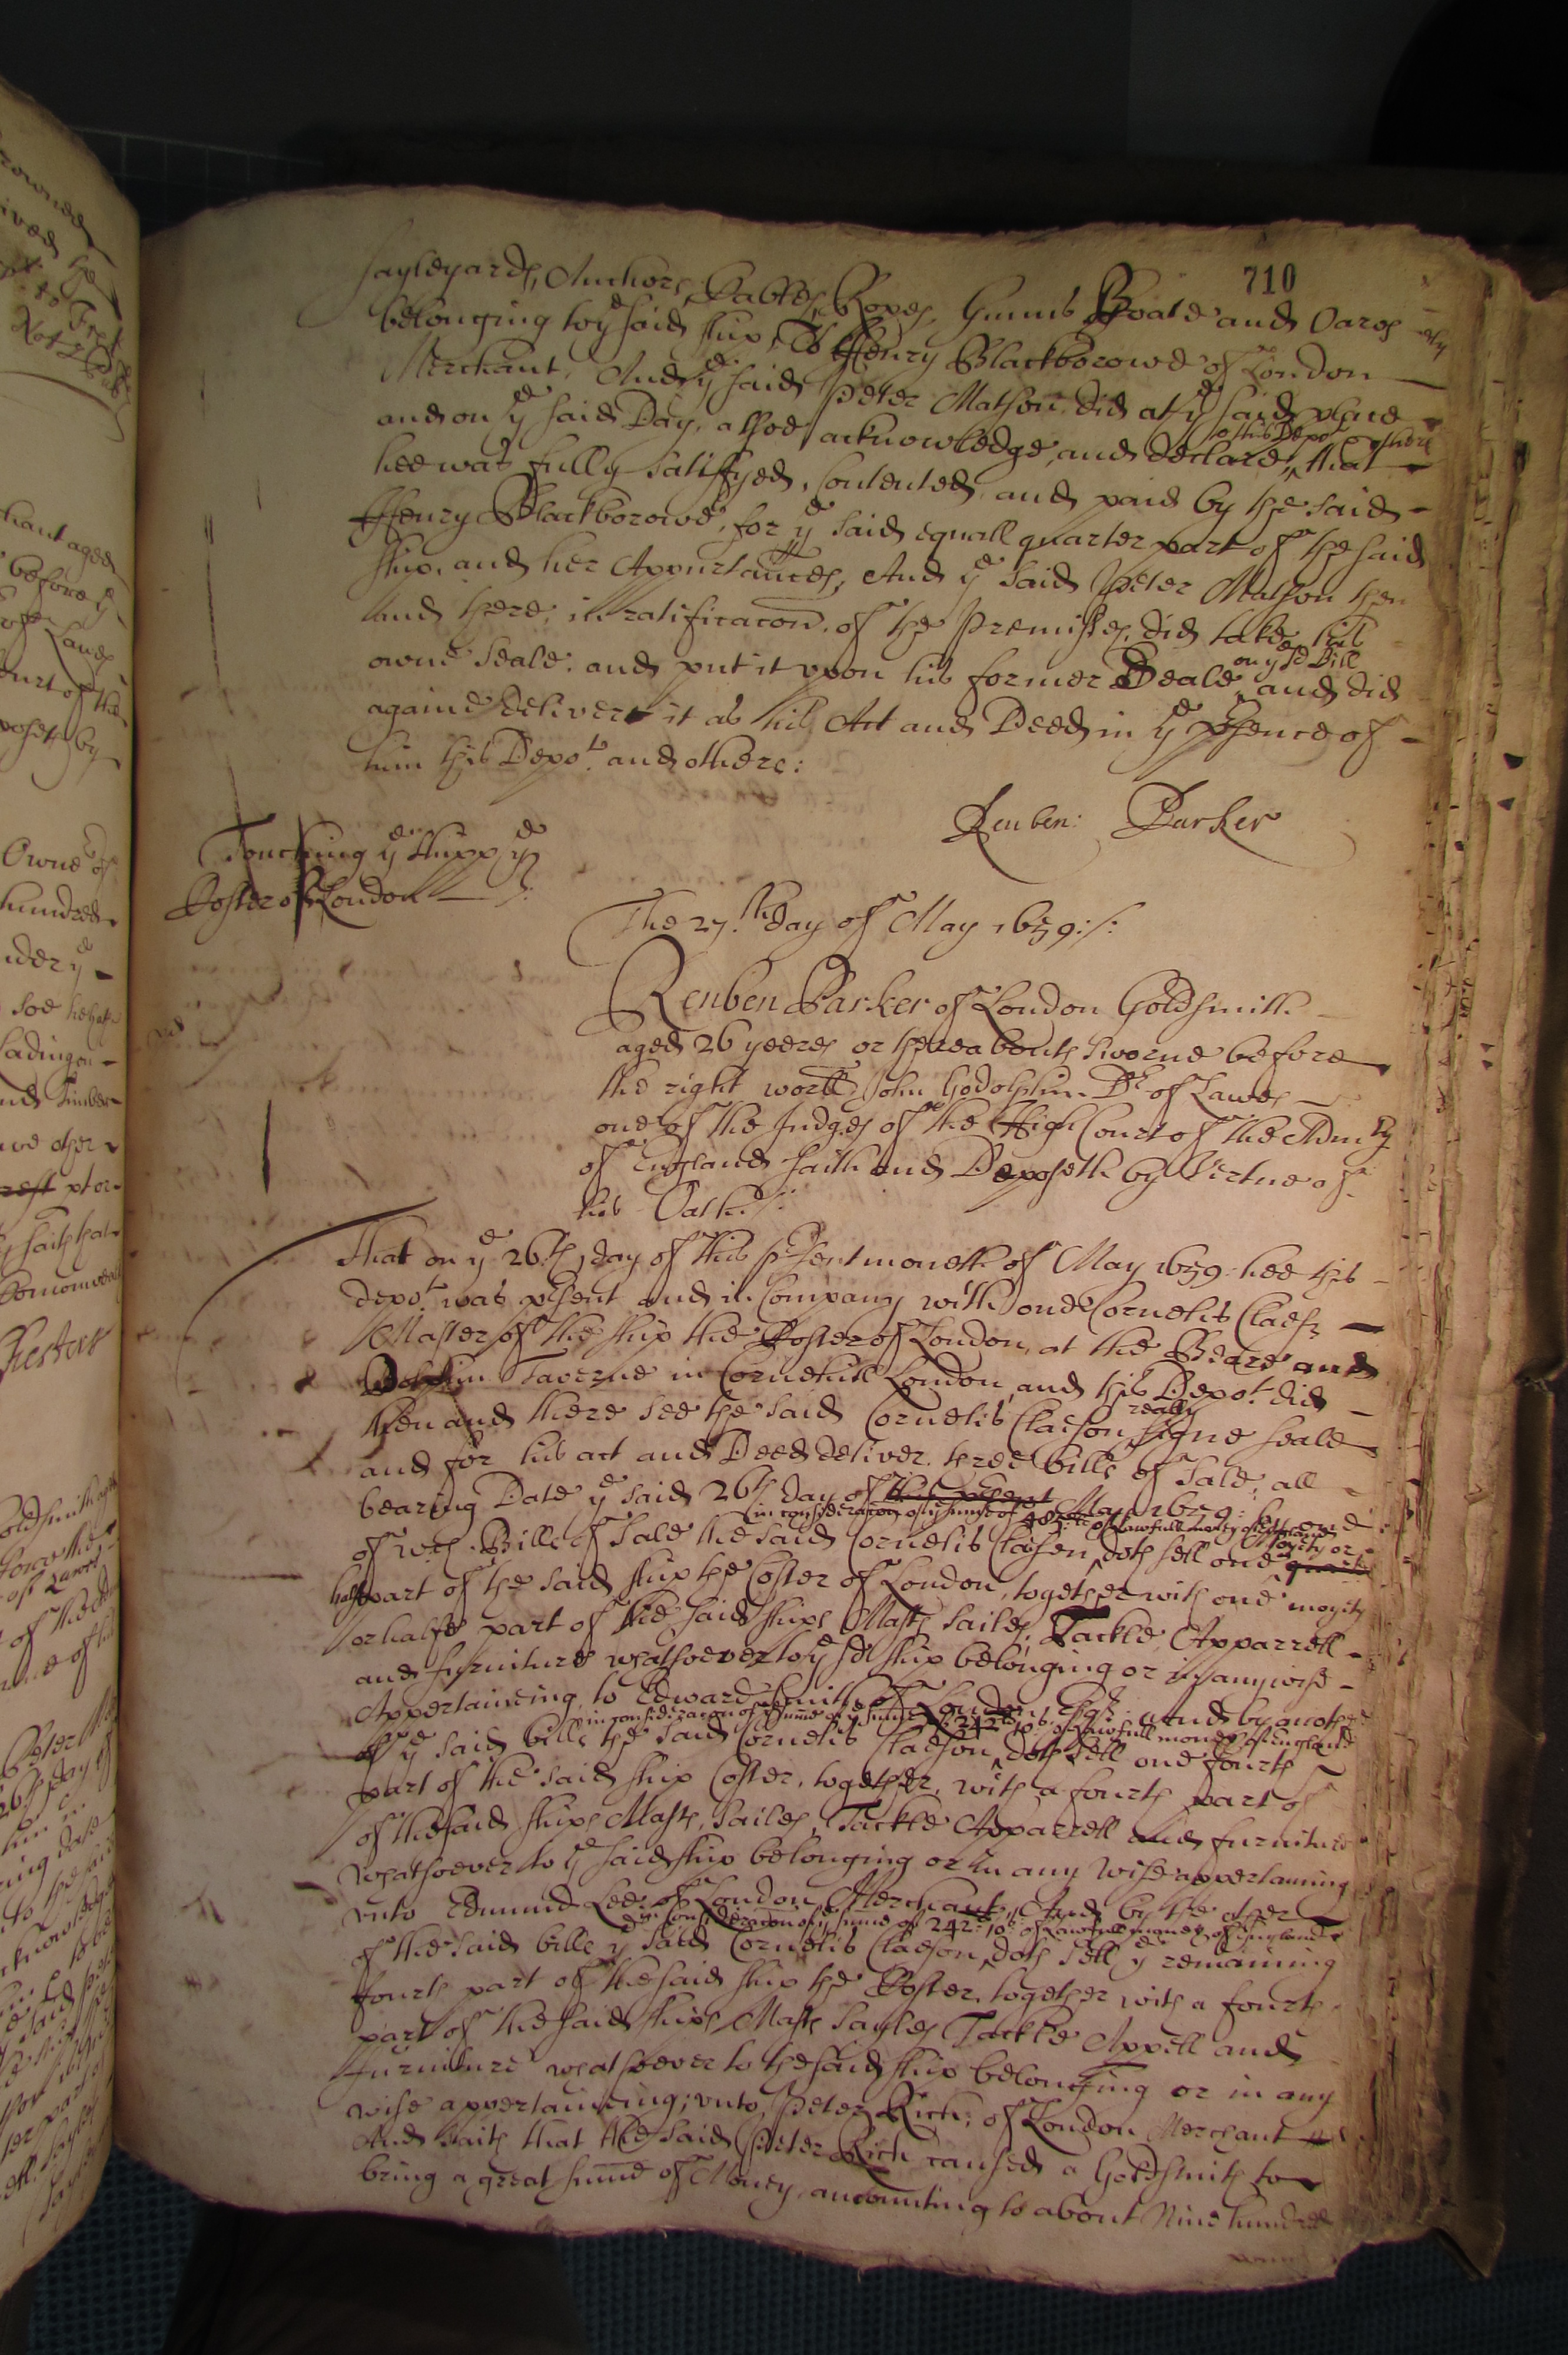 710
sayleyards, Anchors, Cables, Ropes, Gunns Boate and Oares
belonging to ye said ship, To Henry Blackborowe of London
Merchant, And ye said Peter Matson did at ye said place
and on ye said Day, alsoe acknowledge, and declare, to this Depot & others that
hee was fully satisfyed, Contented and paid by the said
Henry Blackborowe, for ye said equall quarter part of the said
ship, and her Appurtances, And ye said Peter Matson then
and there, in ratificacon, of the Premisses, did take his
owne seale, and put it upon his former Seale on ye sd Bill and did
againe deliver it as his Act and Deed in ye psence of
him this Depot. and others:
Reuben: Parker
Touching ye shipp ye
Coster of London
The 27th day of May 1659:/:
Reuben Parker of London Goldsmith
aged 26 yeeres or thereabouts sworne before
the right worll John Godolphin Dr of Lawes
one of the Judges of the High Court of the Admlty
of England saith and Deposeth by Virtue of
his Oath:/:
That on ye 26th day of this psent moneth of May 1659 hee this
depot. was psent and in Company with one Cornelis Claesz
Master of the ship the Coster of London, at the Beare and
Dolphin Taverne in Cornehill London, and this Depot. did
then and there see the said Cornelis Claeson really signe seale
and for his act and Deed deliver three bills of sale, all
bearing Date ye said 26th day of this psent May 1659: by one
in consideracon of ye sume of 485li: of Lawfull money of England
of wch Bills of Sale the said Cornelis Claesen, doth sell one moyety or quarter
halfe part of the said ship the Coster of London, together with one moyity
or halfe part of the said ships Masts sailes, Tackle, Apparrell
and furniture whatsoever to ye sd ship belonging or in any wise
Appertaineing to Edward Smith of London Esqr. And by another
in consideracon of ye sume of 242li: 10s: of Lawfull money of England
of ye said bills the said Cornelis Claeson, doth sell one fourth
part of the said ship Coster, together, with a fourth part of
of the said ships Masts, Sailes, Tackle Apparrell and furniture
whatsoever to ye said ship belonging or in any wise appertaining
vnto Edmund Lee of London Merchant, And by the other
in Consideracon of ye sume of 242li: 10s: of Lawfull money of England
of the said bills ye said Cornelis Claeson, doth sell ye remaining
fourth part of the said ship the Coster, together with a fourth
part of the said ships Masts Sayles Tackle Appell and
furniture whatsoever to the said ship belonging or in any
wise appertaineing; vnto Peter Rich; of London Merchant
And saith that the said Peter Rich caused a Goldsmith to
bring a great sume of Money amounting to about Nine hundred